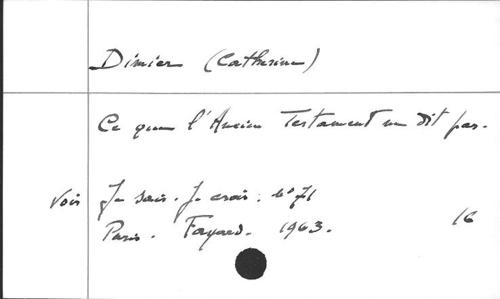 Dimier (Catherine)
Ce que l'Ancien Testament ne dit pas.
Voir Je sais. Je crois. n° 71
Paris. Fayard. 1963. 16